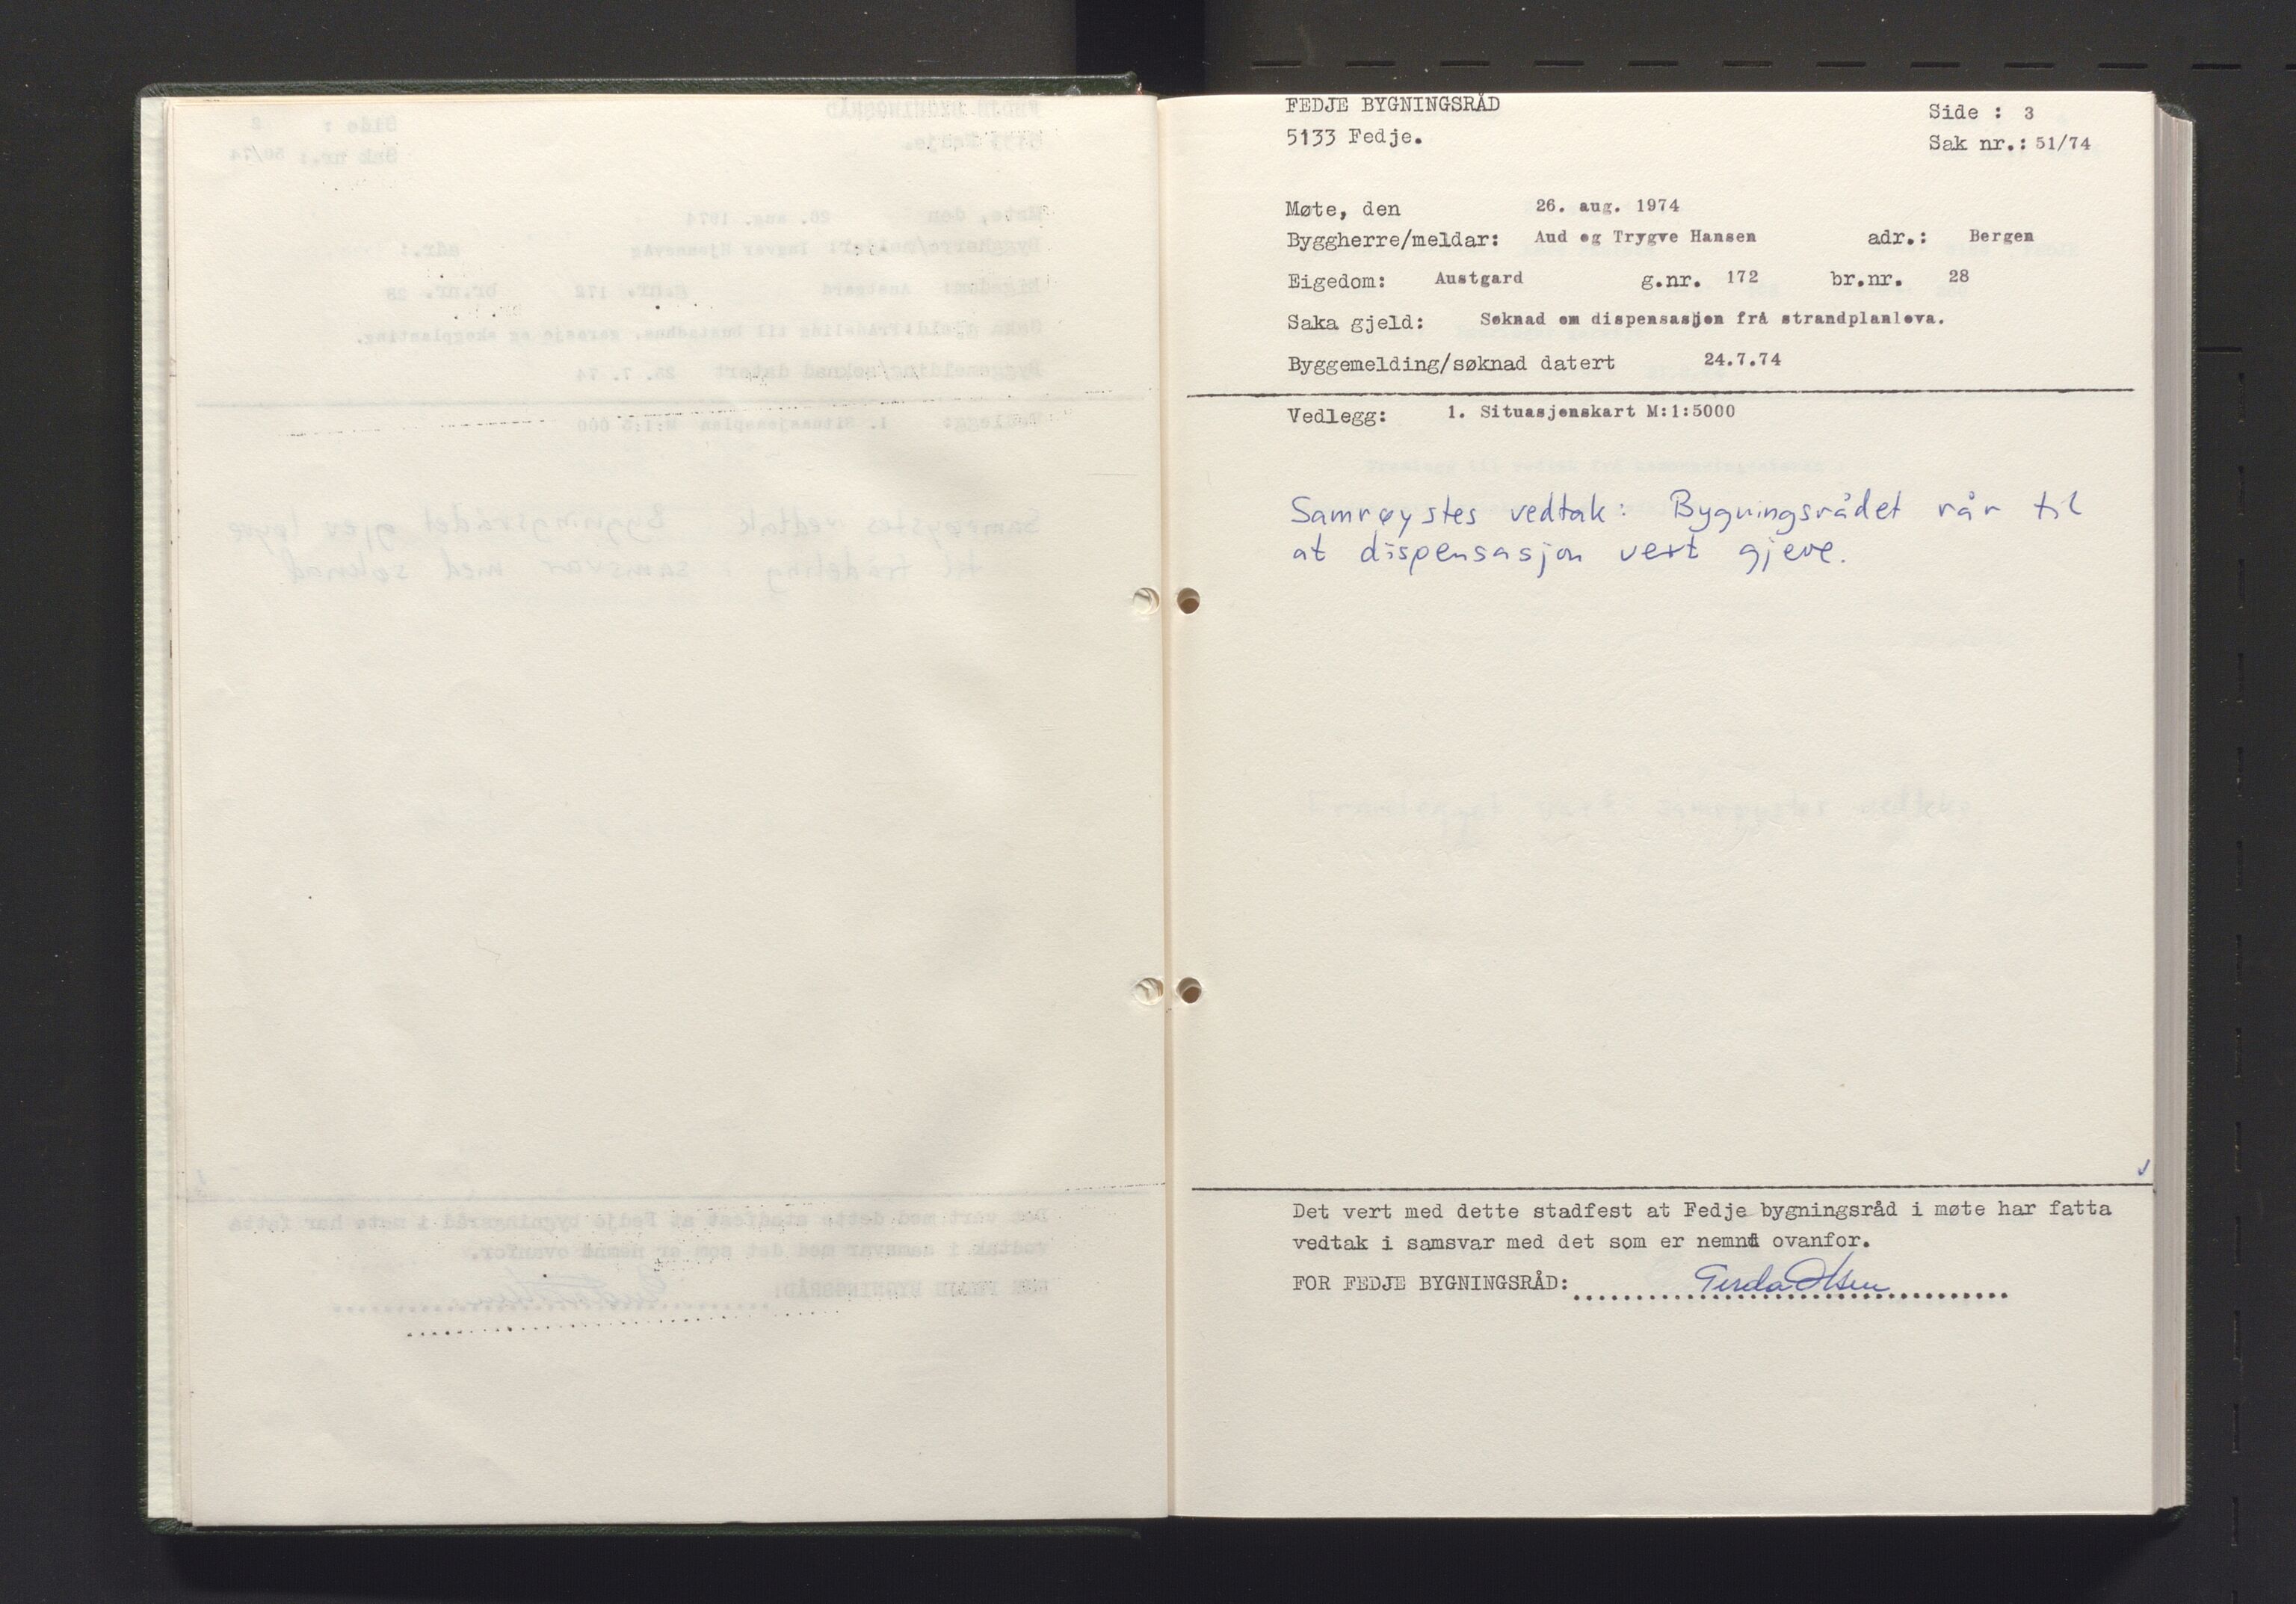 FEDJE BYGNINGSRÅD
5133 Fedje.
Side : 3
Sak nr.: 51/74
Møte, den 26. aug. 1974
Byggherre/meldar: Aud og Trygve Hansen adr.: Bergen
Eigedom: Austgard g.nr. 172 br.nr. 28
Saka gjeld: Søknad om dispensasjon frå strandplanlova.
Byggemelding/søknad datert 24.7.74
Vedlegg: 1. Situasjonskart M:1:5000
Samrøystes vedtak: Bygningsrådet rår til
at dispensasjon vert gjeve.
Det vert med dette stadfest at Fedje bygningsråd i møte har fatta
vedtak i samsvar med det som er nemnt ovanfor.
FOR FEDJE BYGNINGSRÅD: Gerda Olsen